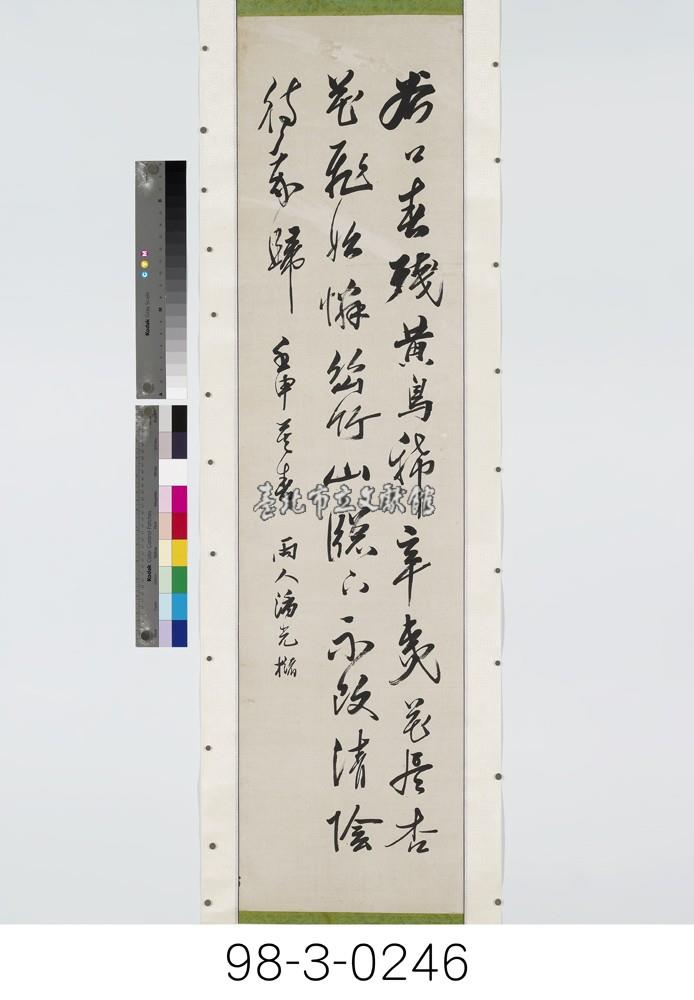 谷口春殘黃鳥稀辛夷花盡杏
花飛始憐幽竹山窗下不改清陰
待我歸
壬申暮春 雨人潘光楷
臺北市立文獻館
98-3-0246